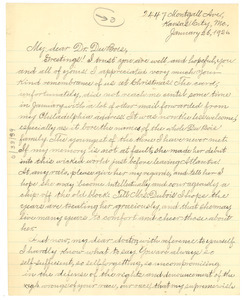 2447 Montgall Ave,
Kansas City, Mo.
January 26, 1926
My dear Dr. Du Bois,
Greetings! I trust you are well and hopeful, you
and all of yours. I appreciate very much your
kind remembrance of us at Christmas. The card,
unfortunately, did not reach us until some time
in January with a lot of other mail forwarded from
my Philadelphia address. It was none the less welcome,
especially as it bore the names of the whole Du Bois
family. The youngest of the house I have never met.
If my memory is not at fault, she made her debut
into this wicked world just before leaving Atlanta.
At any rate, please give her my regards, and tell her I
hope she may become intellectually and courageously a
chip off the old block. Tell Mrs. Du Bois I hope the
years are treating her graciously, and that she may
have many years to comfort and cheer those about
her.
And now, my dear doctor, with reference to yourself
I hardly know what to say. You are always so
self-sufficient, so self-possessing, so uncompromising
in the defense of the rights and denouncement of the
wrongs of your race, our race, that my